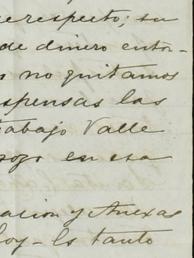 respecto; su
de dinero entor-
s no quitamos
spensas las
trabajo Valle
en esa
acion y Anexas
hoy - lo tanto